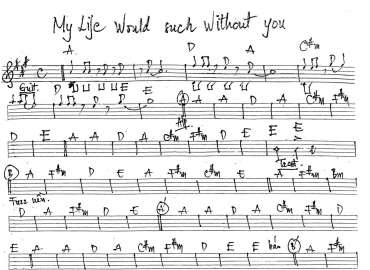 My Life Would such Without you
A D A C#m
Guit. D E E
A A D A C#m F#m
All
D E A A D A C#m F#m D E E E
Tacet
B A F#m D E A F#m D E A F#m Bm
Fuzz
F#m D E A' A D A A C#m F#m D
E A A D A C#m F#m D E E B' A F#m